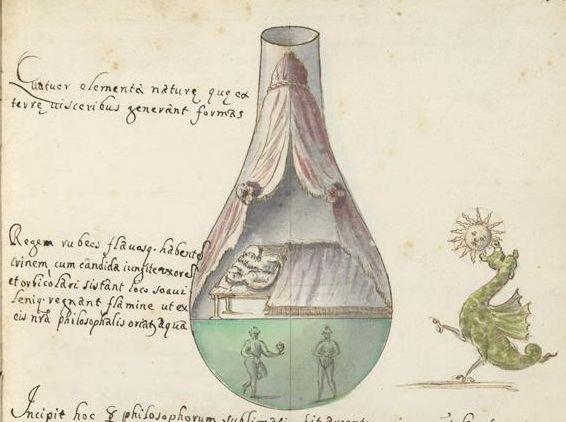 Quatuor elementa naturę quę ex
terrę visceribus generant formas
Regem rubeū flavosq. habentē
crinem cum candida iungite uxore
et orbiculari sistant loco soavi
leniq. regnant flamine ut ex
eis nrā philosophalis oriat aqua
Incipit hoc ☿ philosophorum